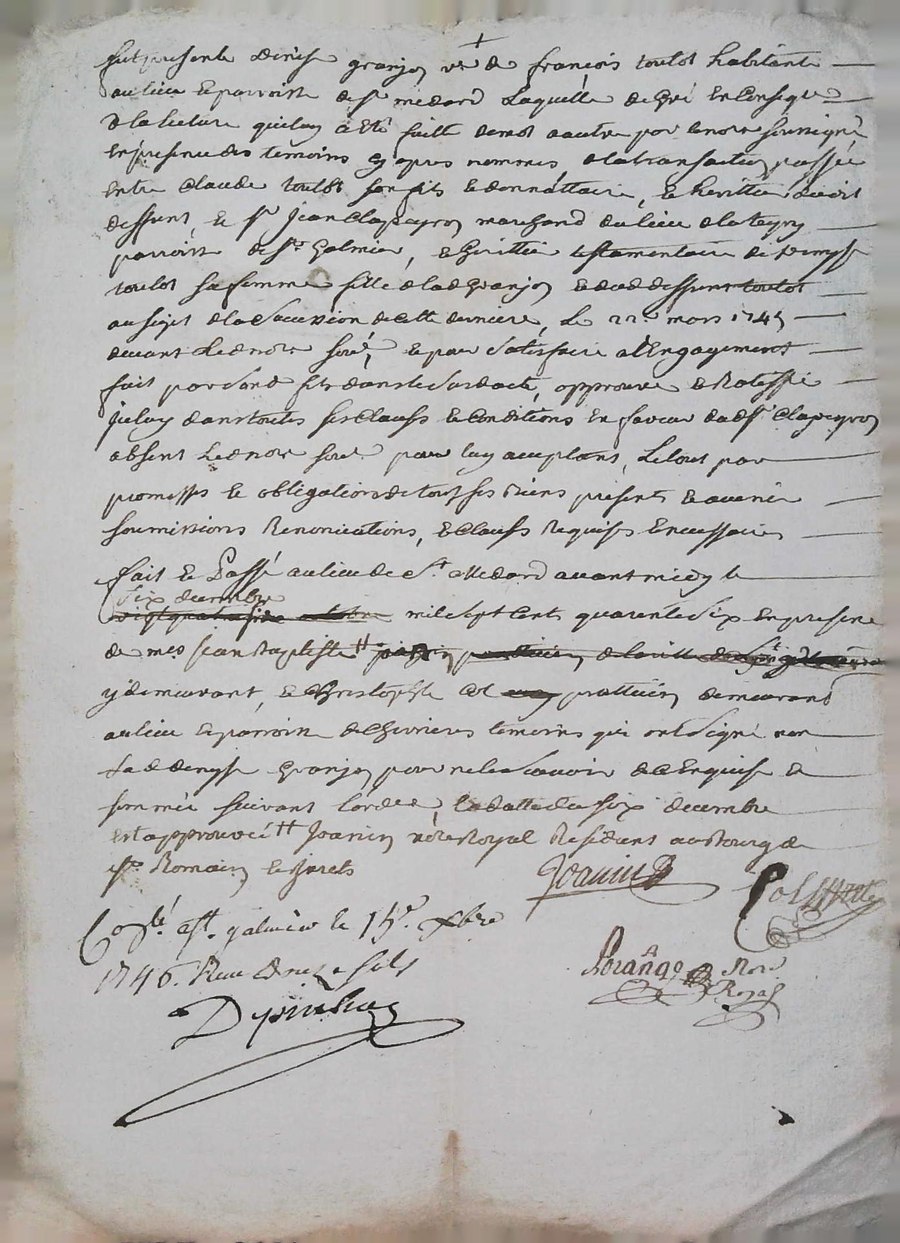 fut presente denise granjon vve de françois toulot habitante
au lieu et parroisse de st medard Laquelle de gré En Conseqce
de la lecture quiluy à été faitte de mot a autre par le nore soussigné
En presence des temoins cy apres nommes de la transaction passée
Entre Claude toulot son fils et donnattaire, et heritier dudit
deffunt, et sr Jean Clapeyron marchand du lieu de
parroisse de st Galmier, heritier testamentaire de denyse
toulot sa femme fille de lad Granjon et dud deffunt toulot
au sujet de la Succession de cette derniere, Le 22e mars 1745
devant Led nore sousé, et pour Satisfaire a l'Engagement
fait par sond fils dans le Susd acte, approuve et Ratiffie
Iceluy dans toutes ses Clauses et Conditions En faveur dud sr Clapeyron
absent Led nore sousé pour luy acceptant, Le tout par
promesses et obligations de tous ses biens presents et avenir
soumissions Renonciations, et Clauses Requises et necessaires
fait et Passé au lieu de St Medard avant midy le
six decembre
mil sept Cents quarente Six En presence
de mes jean Baptiste
y demeurant, et Christophle Col pratticien demeurant
au lieu et parroisse de Chevrieres temoins qui ont Signé non
lad denyse Granjon pour ne le Scavoir de ce Enquise et
sommée suivant l'ordce, la datte du six decembre
est approuvée tt Joanin nore Royal Residant au Bourg de
st Romain
Joanin
Col
Con.lé a st. galmier le 15e xbre
1746. Reçu douze sols
nore
Royal